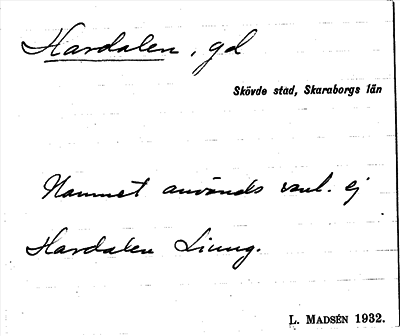 Hardalen, gd
Skövde stad, Skaraborgs län
Namnet används vanl. ej
Hardalen
L. MADSÉN 1932.